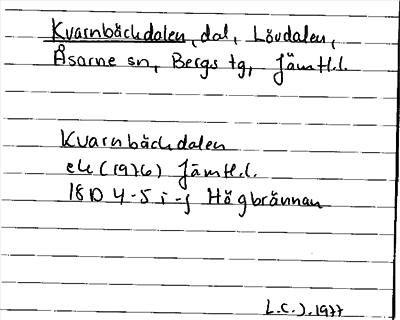 Kvarnbäckdalen, dal, Lövdalen,
Åsarne sn, Bergs tg, Jämtl.l.
Kvarnbäckdalen
ek (1976) Jämtl.l.
18D 4-5 i-j Högbrännan
L.C.J. 1977